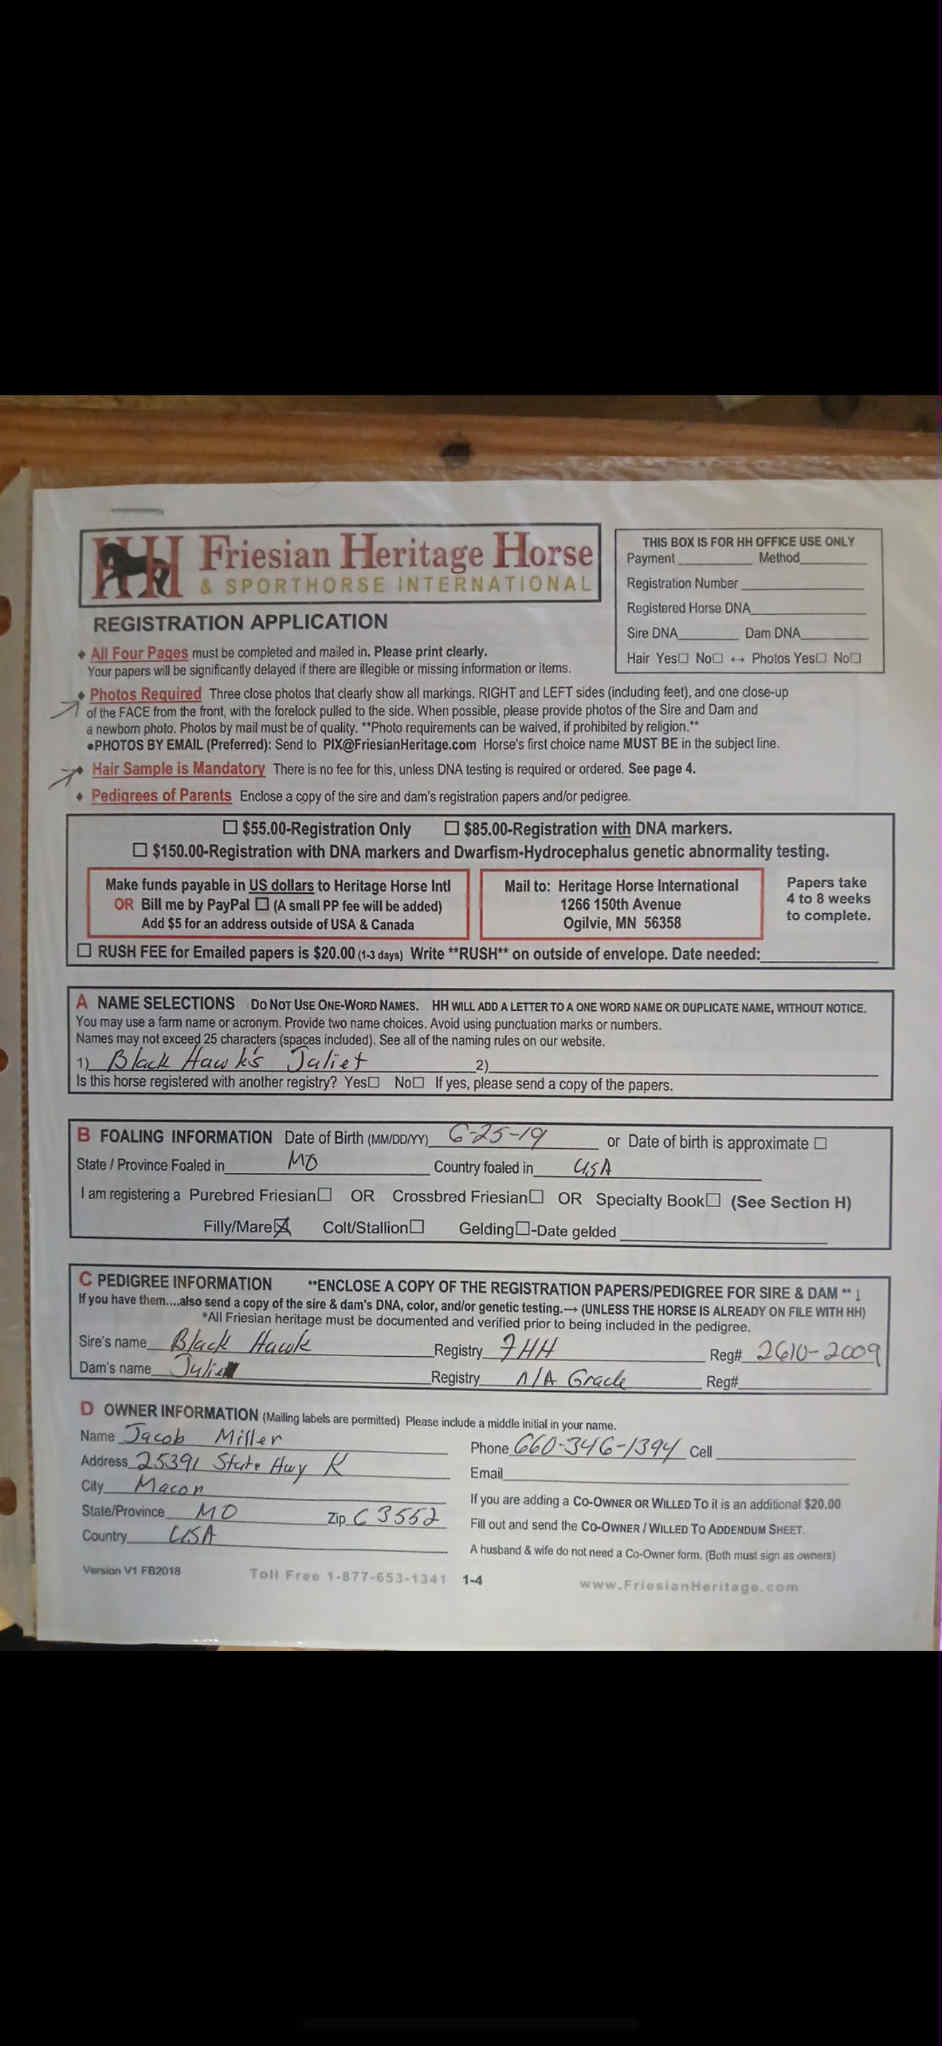 HH Friesian Heritage Horse
& SPORTHORSE INTERNATIONAL
THIS BOX IS FOR HH OFFICE USE ONLY
Payment Method
Registration Number
Registered Horse DNA
Sire DNA Dam DNA
Hair Yes☐ No☐ ↔ Photos Yes☐ No☐
REGISTRATION APPLICATION
♦ All Four Pages must be completed and mailed in. Please print clearly.
Your papers will be significantly delayed if there are illegible or missing information or items.
♦ Photos Required Three close photos that clearly show all markings. RIGHT and LEFT sides (including feet), and one close-up
of the FACE from the front, with the forelock pulled to the side. When possible, please provide photos of the Sire and Dam and
a newborn photo. Photos by mail must be of quality. **Photo requirements can be waived, if prohibited by religion.**
●PHOTOS BY EMAIL (Preferred): Send to PIX@FriesianHeritage.com Horse's first choice name MUST BE in the subject line.
♦ Hair Sample is Mandatory There is no fee for this, unless DNA testing is required or ordered. See page 4.
♦ Pedigrees of Parents Enclose a copy of the sire and dam's registration papers and/or pedigree.
☐ $55.00-Registration Only ☐ $85.00-Registration with DNA markers.
☐ $150.00-Registration with DNA markers and Dwarfism-Hydrocephalus genetic abnormality testing.
Make funds payable in US dollars to Heritage Horse Intl
OR Bill me by PayPal ☐ (A small PP fee will be added)
Add $5 for an address outside of USA & Canada
Mail to: Heritage Horse International
1266 150th Avenue
Ogilvie, MN 56358
Papers take
4 to 8 weeks
to complete.
☐ RUSH FEE for Emailed papers is $20.00 (1-3 days) Write **RUSH** on outside of envelope. Date needed:
A NAME SELECTIONS DO NOT USE ONE-WORD NAMES. HH WILL ADD A LETTER TO A ONE WORD NAME OR DUPLICATE NAME, WITHOUT NOTICE.
You may use a farm name or acronym. Provide two name choices. Avoid using punctuation marks or numbers.
Names may not exceed 25 characters (spaces included). See all of the naming rules on our website.
1) Black Hawk's Juliet 2)
Is this horse registered with another registry? Yes☐ No☐ If yes, please send a copy of the papers.
B FOALING INFORMATION Date of Birth (MM/DD/YY) 6-25-19 or Date of birth is approximate ☐
State / Province Foaled in MO Country foaled in USA
I am registering a Purebred Friesian☐ OR Crossbred Friesian☐ OR Specialty Book☐ (See Section H)
Filly/Mare☒ Colt/Stallion☐ Gelding☐-Date gelded
C PEDIGREE INFORMATION **ENCLOSE A COPY OF THE REGISTRATION PAPERS/PEDIGREE FOR SIRE & DAM ** ↓
If you have them....also send a copy of the sire & dam's DNA, color, and/or genetic testing.→ (UNLESS THE HORSE IS ALREADY ON FILE WITH HH)
*All Friesian heritage must be documented and verified prior to being included in the pedigree.
Sire's name Black Hawk Registry FHH Reg# 2610-2009
Dam's name Registry N/A Grade Reg#
D OWNER INFORMATION (Mailing labels are permitted) Please include a middle initial in your name.
Name Jacob Miller
Phone 660-346-1394 Cell
Address 25391 State Hwy K
Email
City Macon
If you are adding a CO-OWNER OR WILLED TO it is an additional $20.00
State/Province MO Zip 63552
Fill out and send the CO-OWNER / WILLED TO ADDENDUM SHEET.
Country USA
A husband & wife do not need a Co-Owner form. (Both must sign as owners)
Version V1 FB2018 Toll Free 1-877-653-1341 1-4 www.FriesianHeritage.com